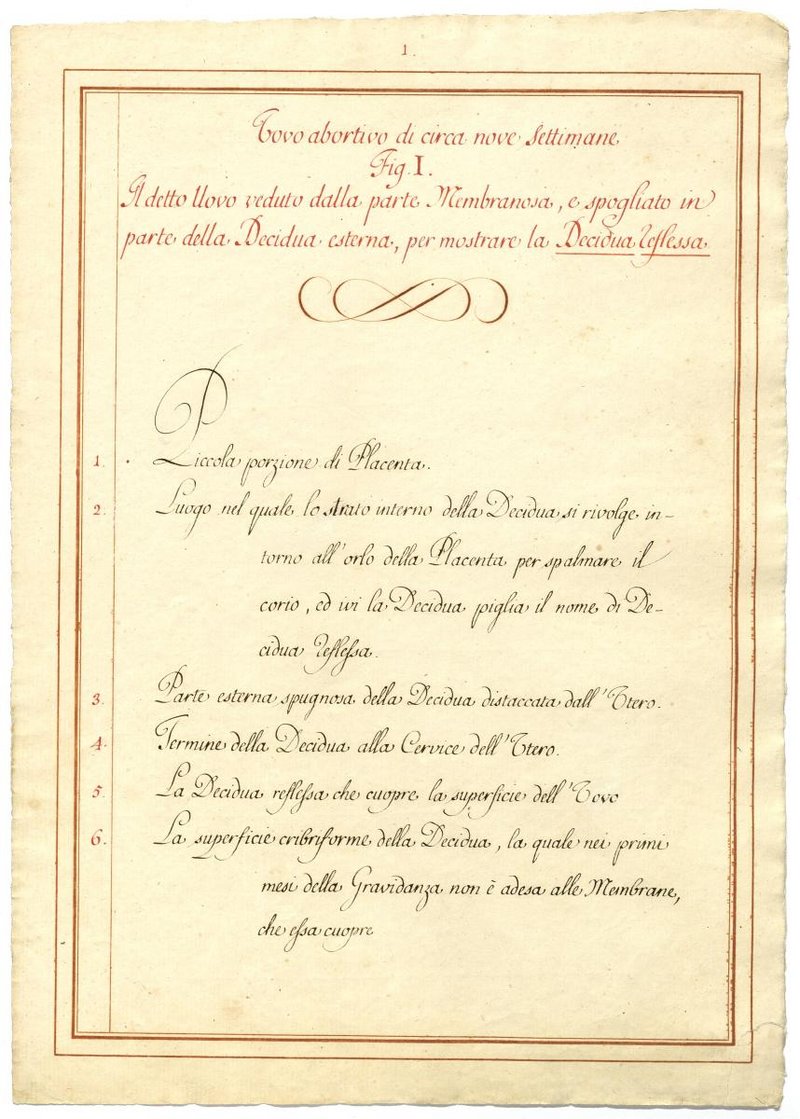 1.
Vovo abortivo di circa nove Settimane
Fig. I.
Il detto Uovo veduto dalla parte Membranosa, e spogliato in
parte della Decidua esterna, per mostrare la Decidua reflessa
1. Piccola porzione di Placenta.
2. Luogo nel quale lo strato interno della Decidua si rivolge in-
torno all'orlo della Placenta per spalmare il
corio, ed ivi la Decidua piglia il nome di De-
cidua reflessa.
3. Parte esterna spugnosa della Decidua distaccata dall'Vtero.
4. Termine della Decidua alla Cervice dell'Vtero.
5. La Decidua reflessa che cuopre la superficie dell'Vovo
6. La superficie cribriforme della Decidua, la quale nei primi
mesi della Gravidanza non è adesa alle Membrane,
che essa cuopre